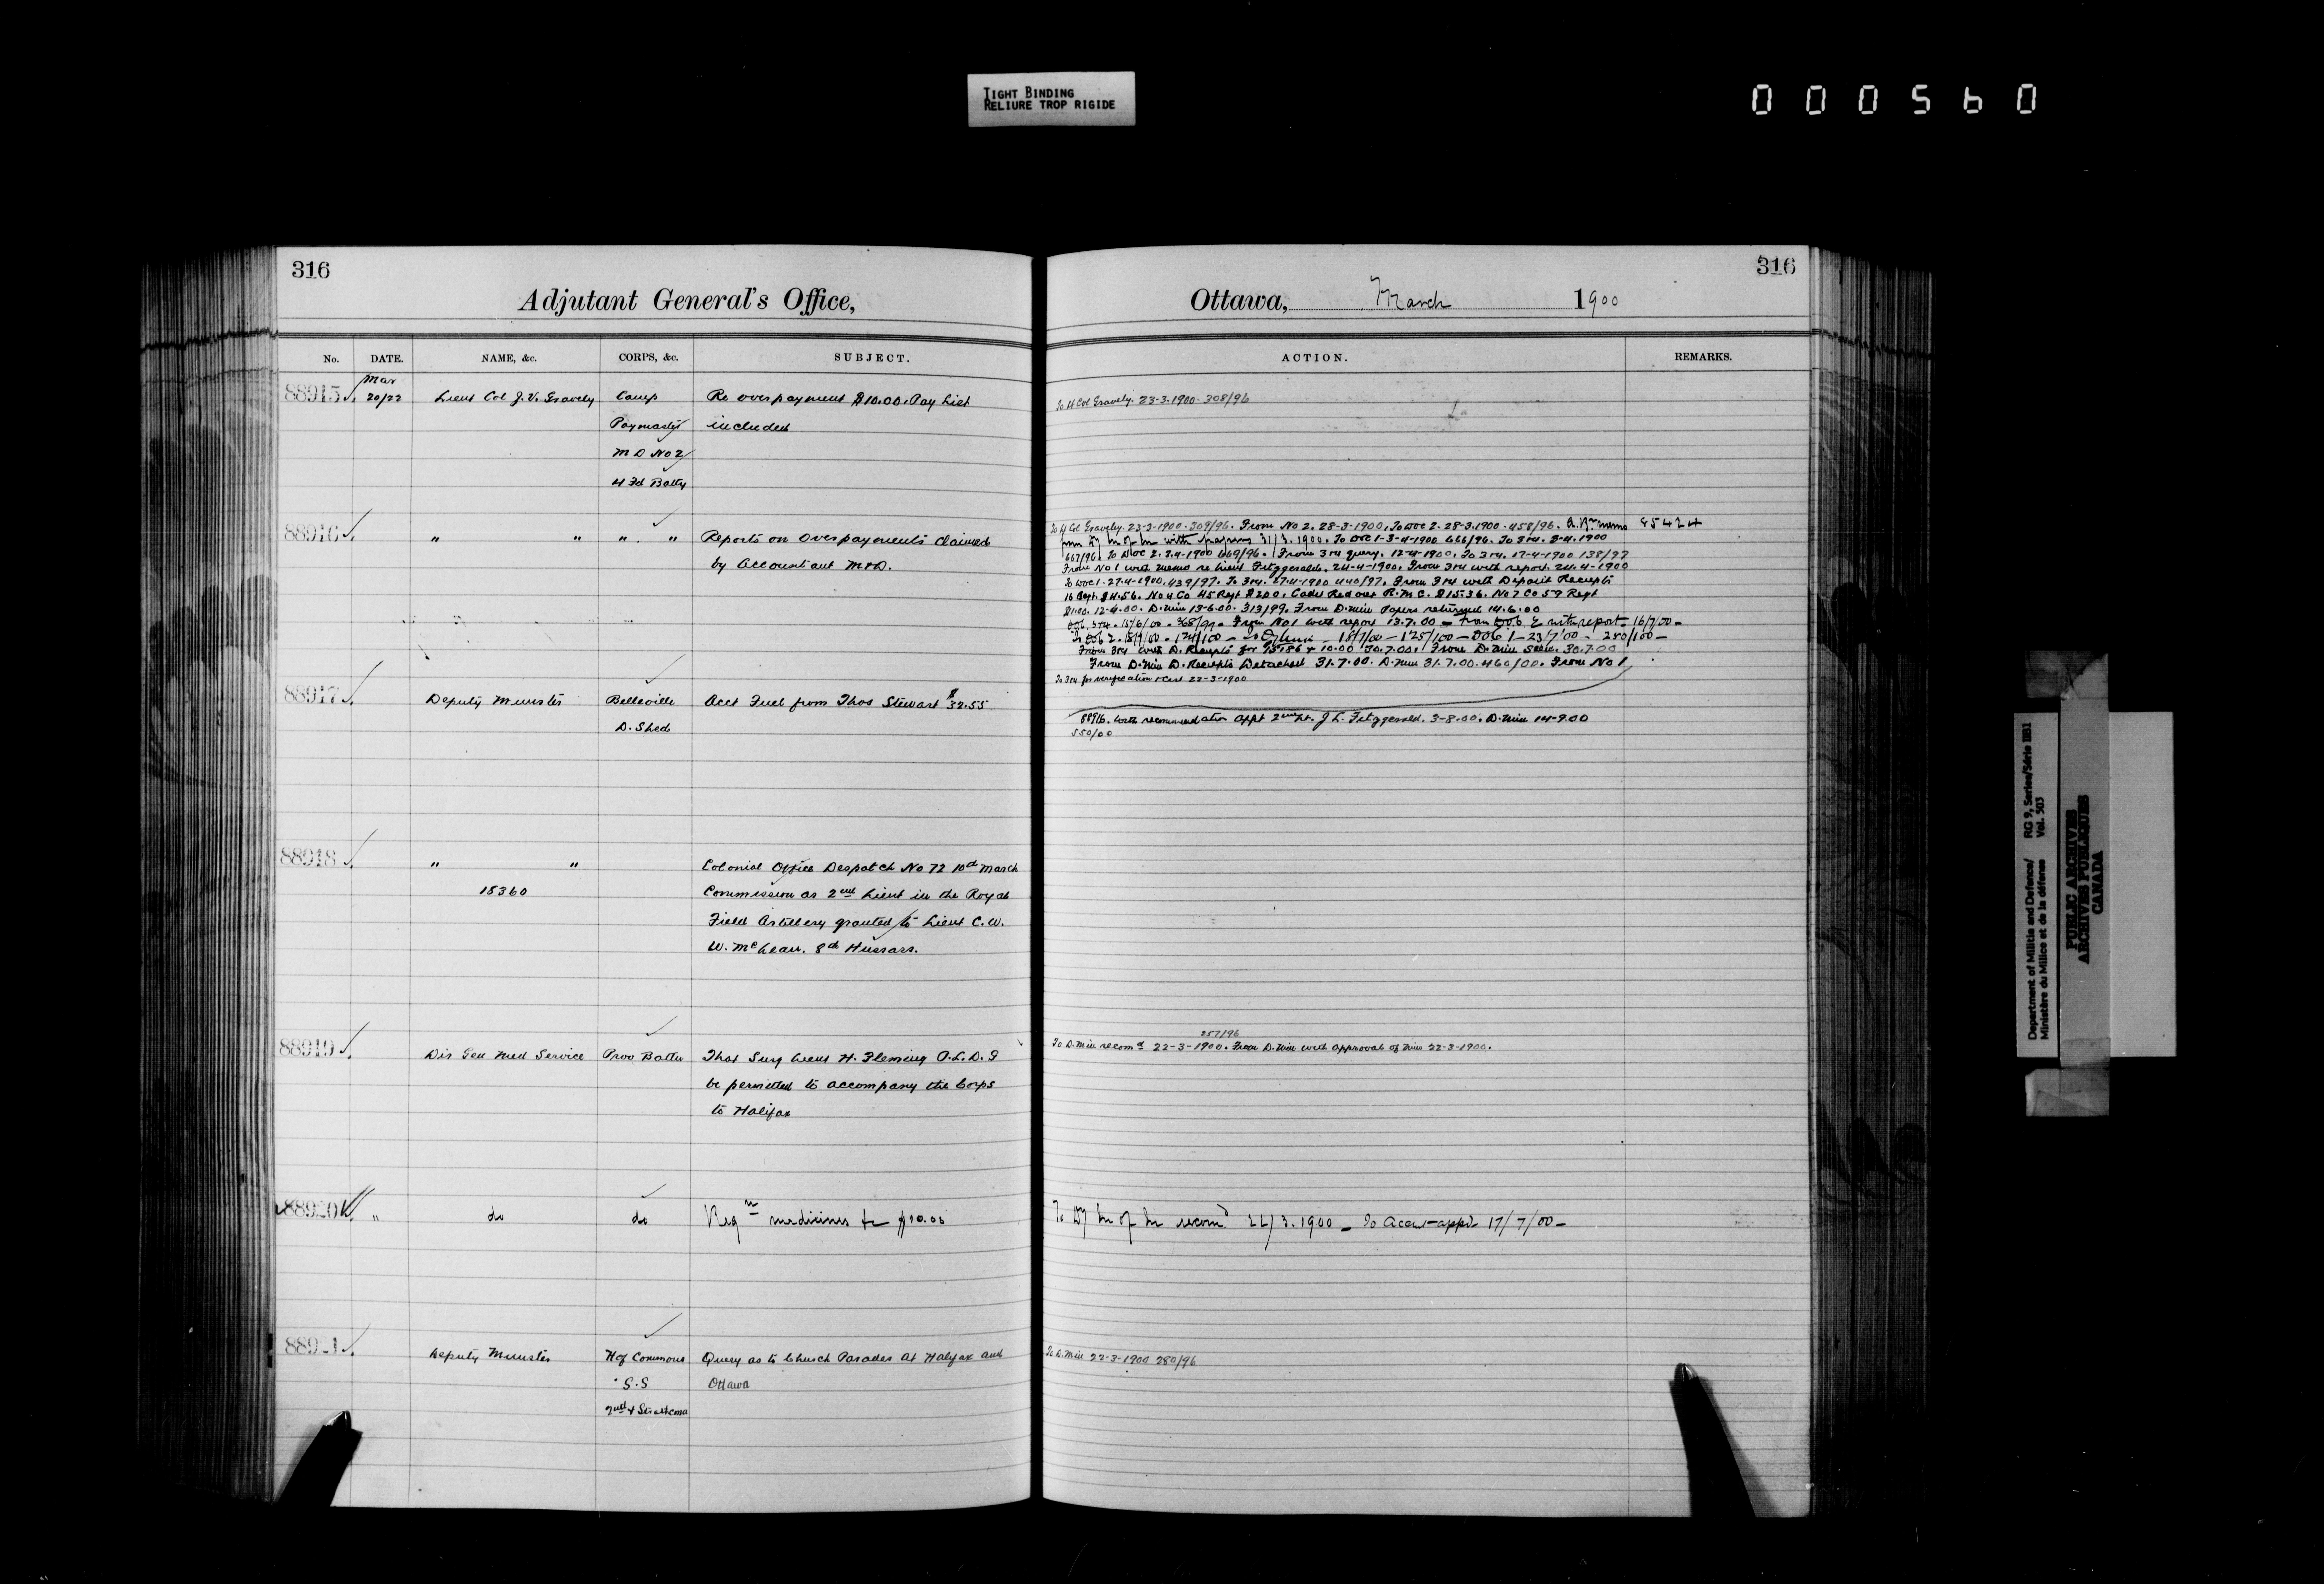 TIGHT BINDING
RELIURE TROP RIGIDE
000560
316
Adjutant General's Office,
No. DATE. NAME, &c. CORPS, &c. SUBJECT.
Mar
88915 20/22 Lieut Col J. V. Gravely Camp Re overpayment $10.00. Pay List
Paymaster included
M D No 2
4 Fd Batty
88916 " " " " Reports on Overpayments claimed
by Accountant M&D.
88917 Deputy Minister Belleville Acct Fuel from Thos Stewart $32.55
D. Shed
88918 " " Colonial Office Despatch No 72 10th March
18360 Commission as 2nd Lieut in the Royal
Field Artillery granted to Lieut C. W.
W. McLean. 8th Hussars.
88919 Dir Gen Med Service Prov Battn That Surg Lieut H. Fleming P.L.D.G
be permitted to accompany the Corps
to Halifax
88920 " do do Reqn medicines for $10.00
88921 Deputy Minister H of Commons Query as to Church Parades at Halifax and
S.S Ottawa
2nd & Strathcona
316
Ottawa, March 1900
ACTION. REMARKS.
To Lt Col Gravely. 23-3-1900. 308/96
To Lt Col Gravely. 23-3-1900. 309/96. From No 2. 28-3-1900. To DOC 2. 28-3-1900. 458/96. 85424
from Dy M of M with papers 31/3.1900. To DOC 1-3-4-1900 666/96. To 3rd. 3-4.1900
667/96. To DOC 2. 3.4-1900 669/96. From 3rd query. 12-4-1900. To 3rd. 17-4-1900 138/97
From No 1 with memo re Lieut Fitzgerald. 24-4-1900. From 3rd with report. 24.4-1900
To DOC 1. 27.4-1900. 439/97. To 3rd. 27.4-1900 440/97. From 3rd with Deposit Receipts
16 Regt. $4.56. No 4 Co 45 Regt $2.00. Cadet R.M.C. $15.36. No 7 Co 59 Regt
$1.00. 12-6.00. D. Min 13-6.00. 313/99. From D. Min Papers returned 14.6.00
3rd. 15/6/00 - 368/99. From No 1 with report 13.7.00 - from with report - 16/7/00 -
18/7/00 - 174/100 - 18/7/00 - 125/100 - DOC 1 - 23/7/00 - 250/100 -
From 3rd with D. Receipts for $5.86 & 10.00 30.7.00. From D. Min 30.7.00
From D. Min D. Receipts Detached 31.7.00. D. Min 31.7.00. 460/00. From No 1
To 3rd for verification & Cert 22-3-1900
88916. with recommendation appt 2nd Lt. J L. Fitzgerald. 3-8.00. D. Min 14-9.00
550/00
257/96
To D. Min recomd 22-3-1900. From D. Min with approval of Min 22-3-1900.
To Dy M of M recomd 22/3.1900 - To Acct - appd 17/7/00 -
To D. Min 22-3-1900 280/96
Department of Militia and Defence/ RG 9, Series/Série IIB1
Ministère du Milice et de la défense Vol. 503
PUBLIC ARCHIVES
ARCHIVES PUBLIQUES
CANADA